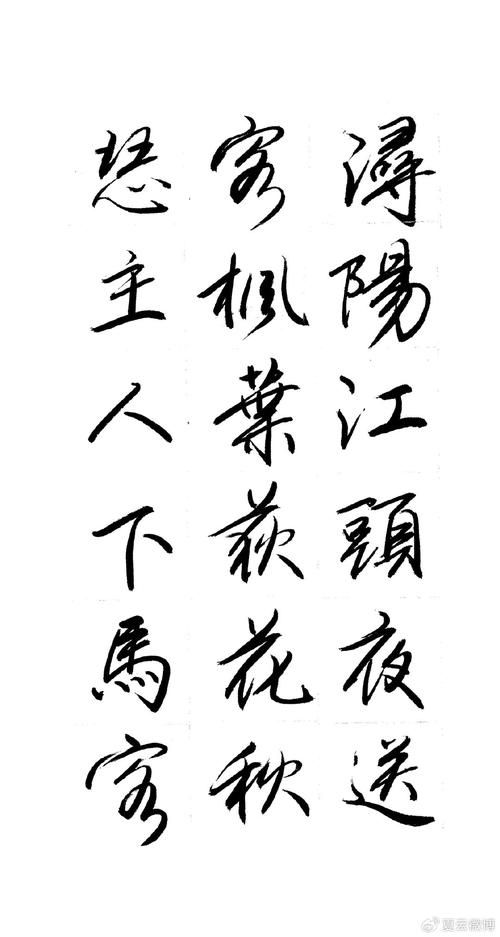 潯陽江頭夜送
客楓葉荻花秋
瑟主人下馬客
@夏云微博